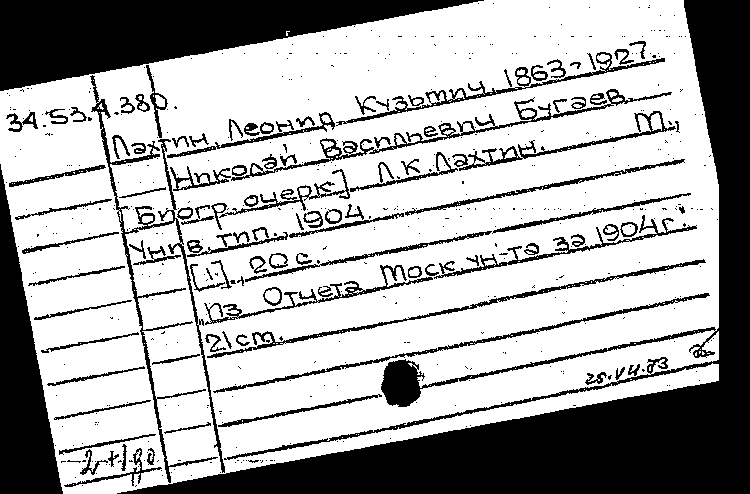 34.53.4.380.
Лахтин, Леонид Кузьмич. 1863-1927.
Николай Васильевич Бугаев.
[Биогр. очерк] Л.К. Лахтин. М.,
Унив. тип., 1904.
[1], 20 с.
Из Отчета Моск. ун-та за 1904г.
21 cm.
25.VII.83
2+1